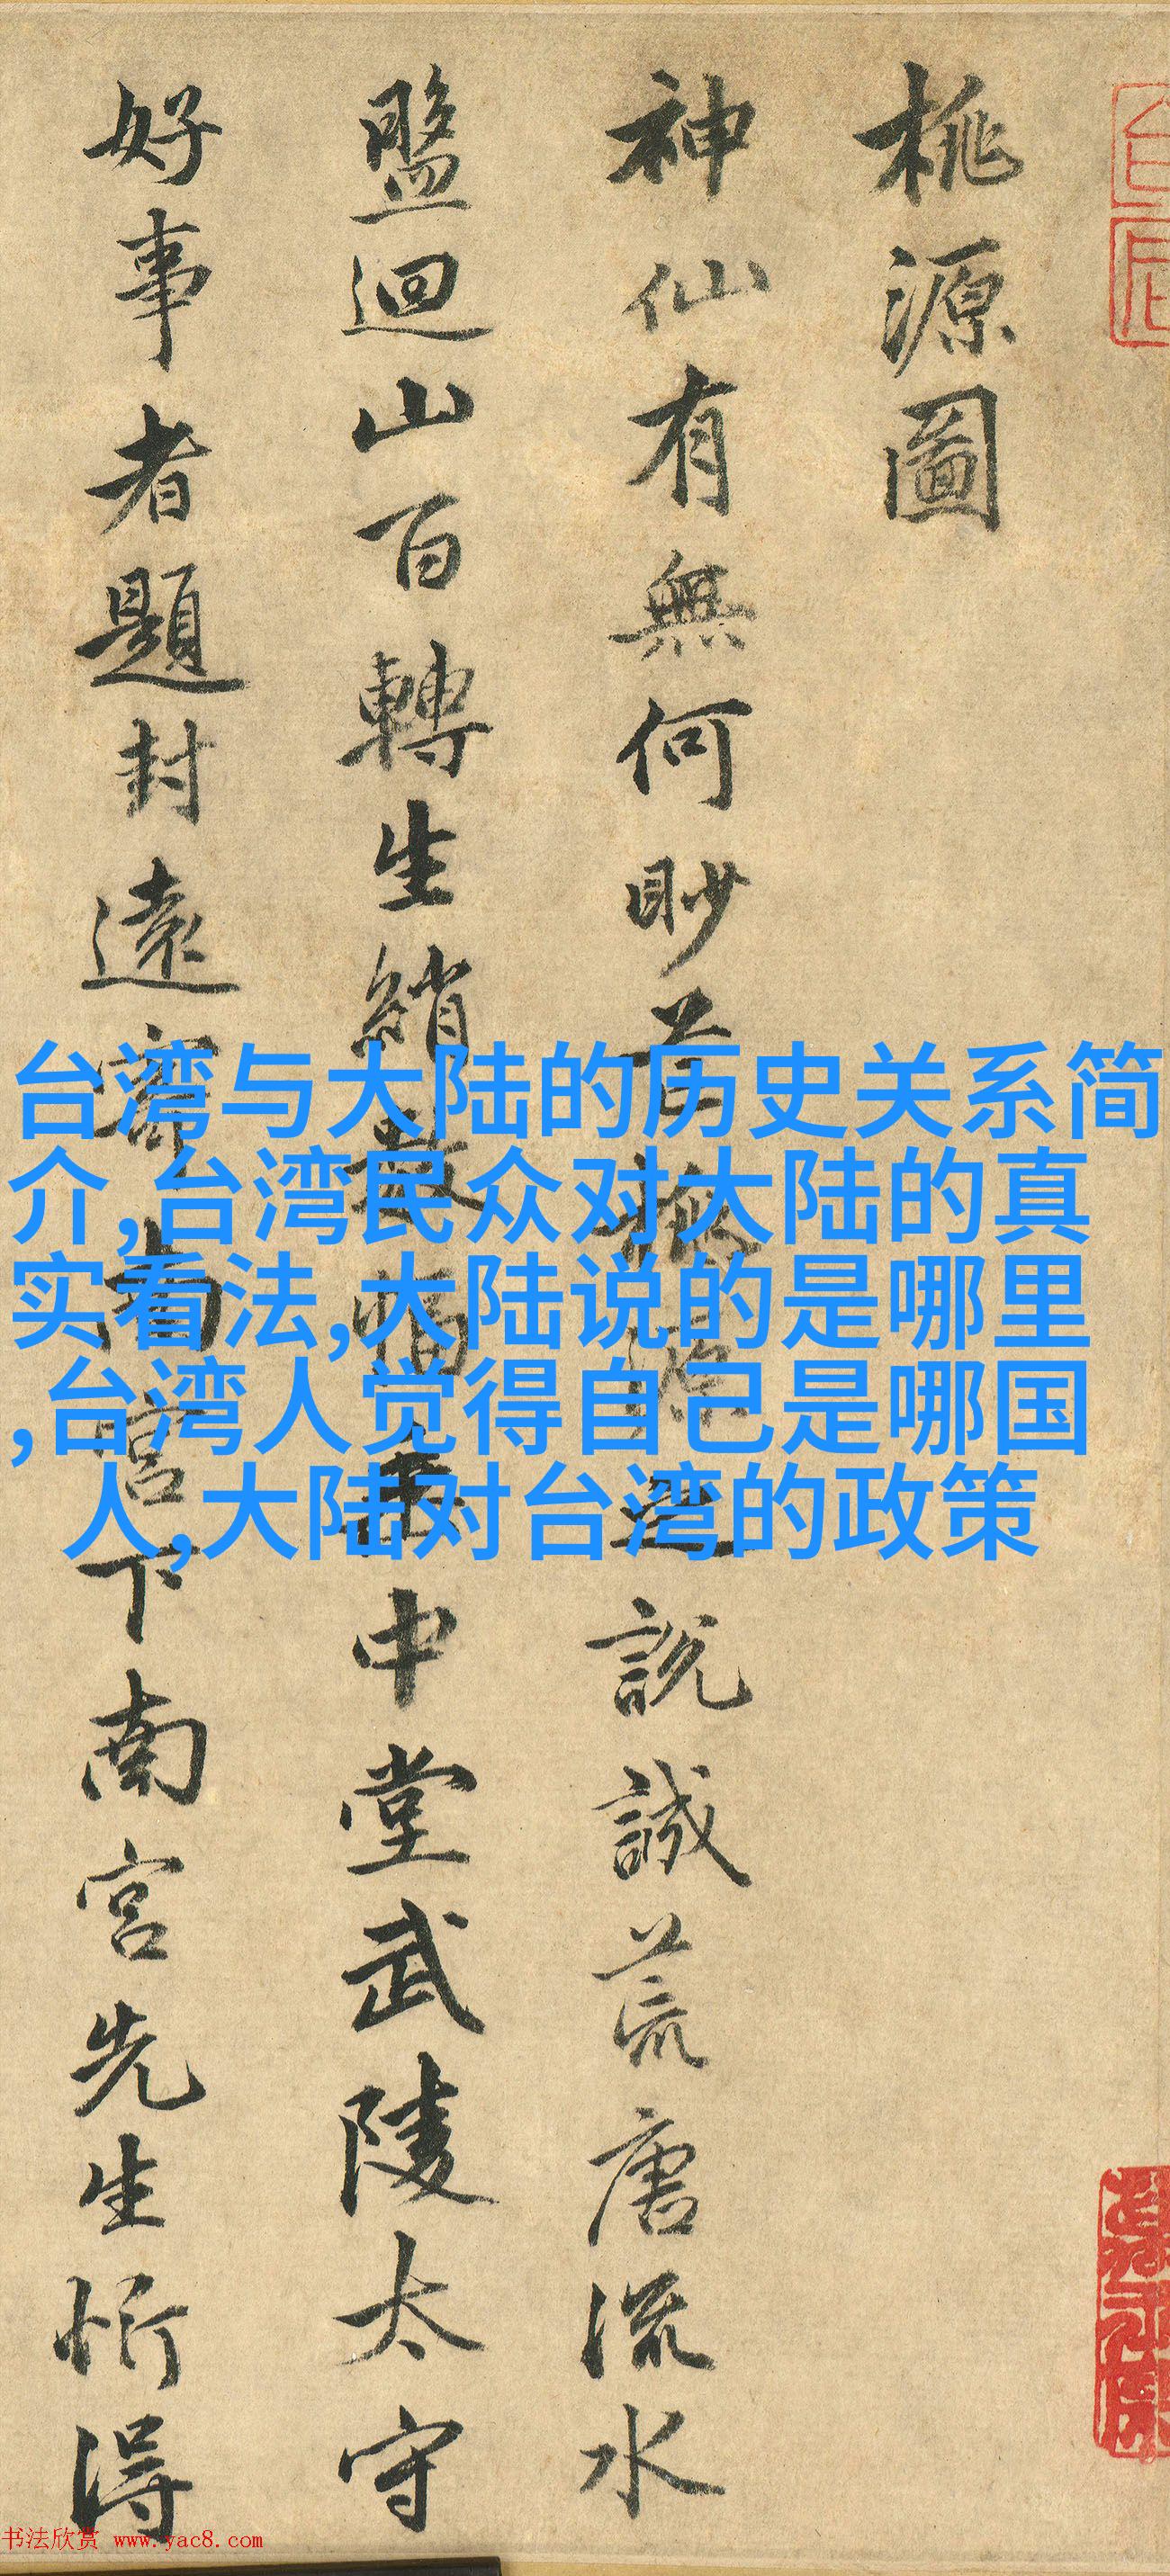 桃源圖
神仙有無何眇芒桃源之說誠荒唐流水
盤迴山百轉生綃數幅垂中堂武陵太守
好事者題封遠寄南宮下南宮先生忻得
台湾与大陆的历史关系简
介,台湾民众对大陆的真
实看法,大陆说的是哪里
,台湾人觉得自己是哪国
人,大陆对台湾的政策
书法欣赏 www.yac8.com